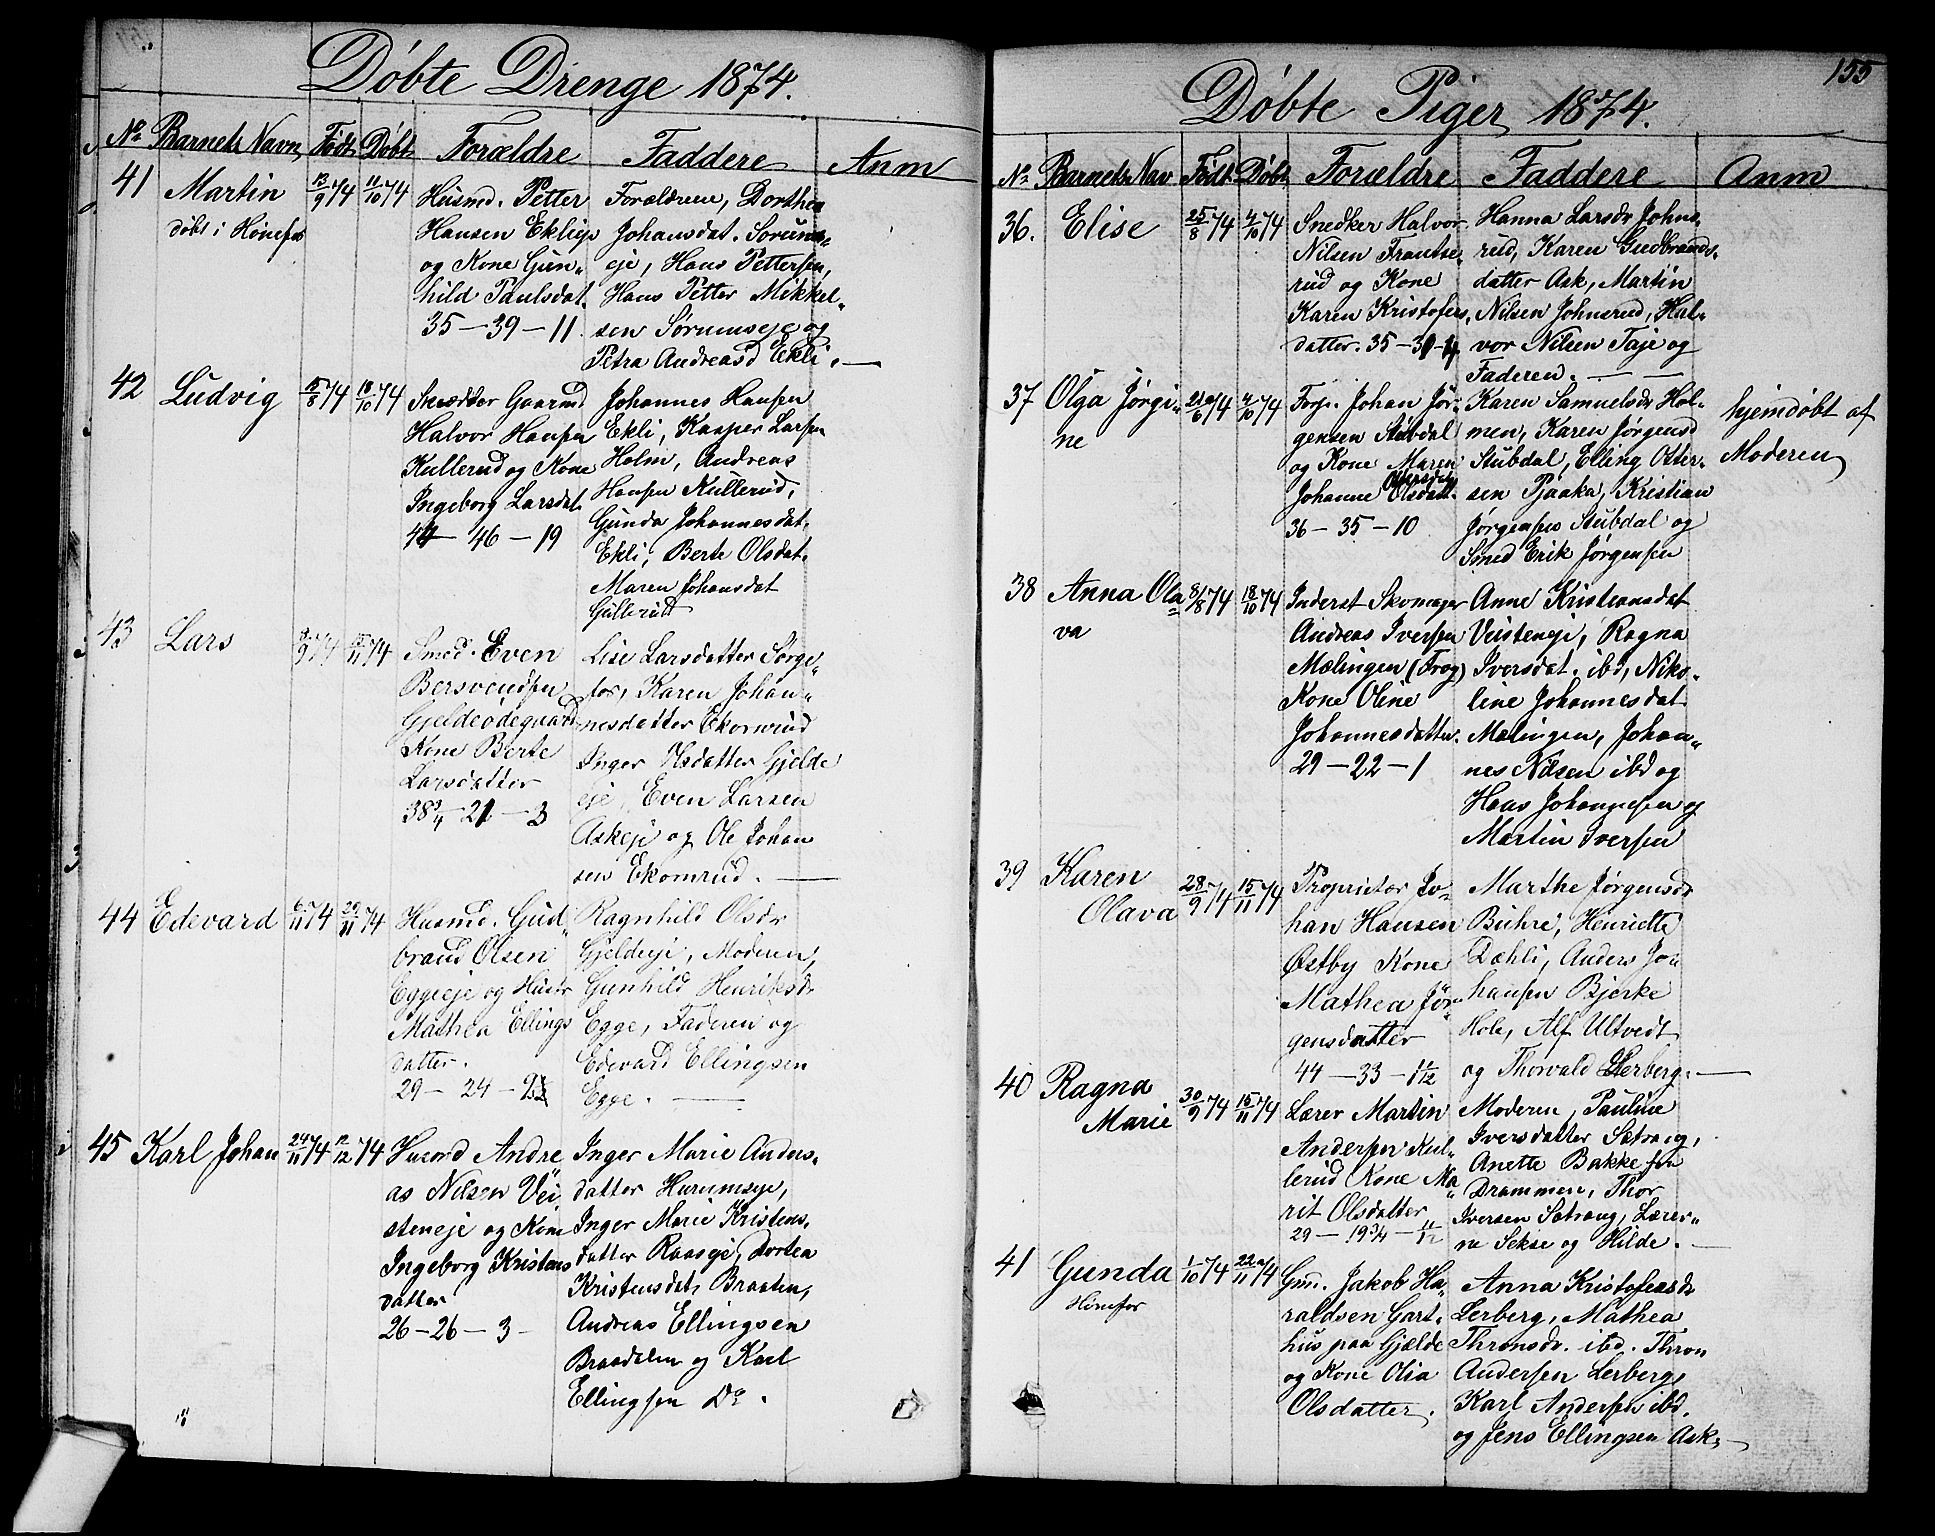 Døbte Drenge 1874.
No Barnets Navn Født Døbt Forældre Faddere Anm
41 Martin 13/9 74 11/10 74
døbt i Hønefos
Husmd. Petter
Hansen Eklieje
og Kone Gun-
hild Paulsdat.
35 - 39 - 11.
Forældrene, Dorthea
Johansdat. Sørums-
eje, Hans Pettersen,
Hans Petter Mikkel-
sen Sørumseje og
Petra Andreasd Ekli. —
42 Ludvig 15/8 74 18/10 74
Skrædder Gaarmd
Halvor Hansen
Kullerud og Kone
Ingeborg Larsdat.
44 - 46 - 19
Johannes Hansen
Ekli, Kasper Larsen
Holm, Andreas
Hansen Kullerud,
Gunda Johannesdat.
Ekli, Berte Olsdat.
Maren Johansdat
Gullerud
43 Lars /9 74 15/11 74
Smed. Even
Bersvendsen
Gjeldeødegaard
Kone Berte
Larsdatter
38 3/4 - 21 - 3
Lise Larsdatter Sørge-
for, Karen Johan-
nesdatter Ekornrud
Inger Ilsdatter Gjelde
eje, Even Larsen
Askeje og Ole Johan
sen Ekornrud. —
44 Edevard 6/11 74 29/11 74
Husmd. Gud-
brand Olsen
Eggeeje og Hustr
Mathea Ellings
datter.
29 - 24 -
Ragnhild Olsdr
Gjeldeeje, Moderen,
Gunhild Henriksdr
Egge, Faderen og
Edevard Ellingsen
Egge. —
45 Karl Johan 24/11 74 12/12 74
Husmd Andre
as Nilsen Vei
steneje og Kone
Ingeborg Kristens
datter
26 - 26 - 3 -
Inger Marie Anders-
datter Hurumseje,
Inger Marie Kristens-
datter Raaseje, Dortea
Kristensdat. Braaten,
Andreas Ellingsen
Braadalen og Karl
Ellingsen Do.
155
Døbte Piger 1874.
No Barnets Nav Født Døbt Forældre Faddere Anm
36. Elise 25/8 74 4/10 74
Snedker Halvor
Nilsen Frantse-
rud og Kone
Karen Kristofers-
datter. 35 - 31 - 4
Hanna Larsdr Johns-
rud, Karen Gudbrands-
datter Ask, Martin
Nilsen Johnsrud, Hal-
vor Nilsen Taje og
Faderen. —
37 Olga Jørgi- /6 74 4/10 74
ne
Forp. Johan Jør-
gensen Stubdal
og Kone Maren
Johanne Olsdatt.
36 - 35 - 10
Karen Samuelsdr Hol-
men, Karen Jørgensd
Stubdal, Elling Oster-
sen Pjaaka, Kristian
Jørgensen Stubdal og
Smed Erik Jørgensen
hjemdøbt af
Moderen
38 Anna Ola 8/8 74 18/10 74
va
Inderst Skomager
Andreas Iversen
Mælingen (Frog)
Kone Oline
Johannesdatter.
29 - 22 - 1
Anne Kristiansdat
Veisteneje, Ragna
Iversdat. ibd, Niko-
line Johannesdat
Mælingen, Johan-
nes Nilsen ibd og
Hans Johannesen og
Martin Iversen
39 Karen 28/9 74 15/11 74
Olava
Proprietær Jo-
han Hansen
Østby Kone
Mathea Jør-
gensdatter
44 - 33 - 1 1/12
Marthe Jørgensdr
Buhre, Henriette
Dæhli, Anders Jo-
hansen Bjerke
Hole, Alf Ultvedt
og Thorvald Lerberg. —
40 Ragna 30/9 74 15/11 74
Marie
Lærer Martin
Andersen Kul-
lerud Kone Ma-
rit Olsdatter
29 - 19 3/4 - 11/12
Moderen, Pauline
Iversdatter Sætrang,
Anette Bakke fra
Drammen, Thor
Iversen Sætrang, Lærer-
ne Sekse og Hilde. —
41 Gunda 1/10 74 22/11 74
Hønefos
Gm. Jakob Ha-
raldsen Gart-
hus paa Gjælde
og Kone Olia
Olsdatter.
Anna Kristofersdr
Lerberg, Mathea
Thronsdr. ibd. Thron
Andersen Lerberg
Karl Andersen ibd.
og Jens Ellingsen Ask. —